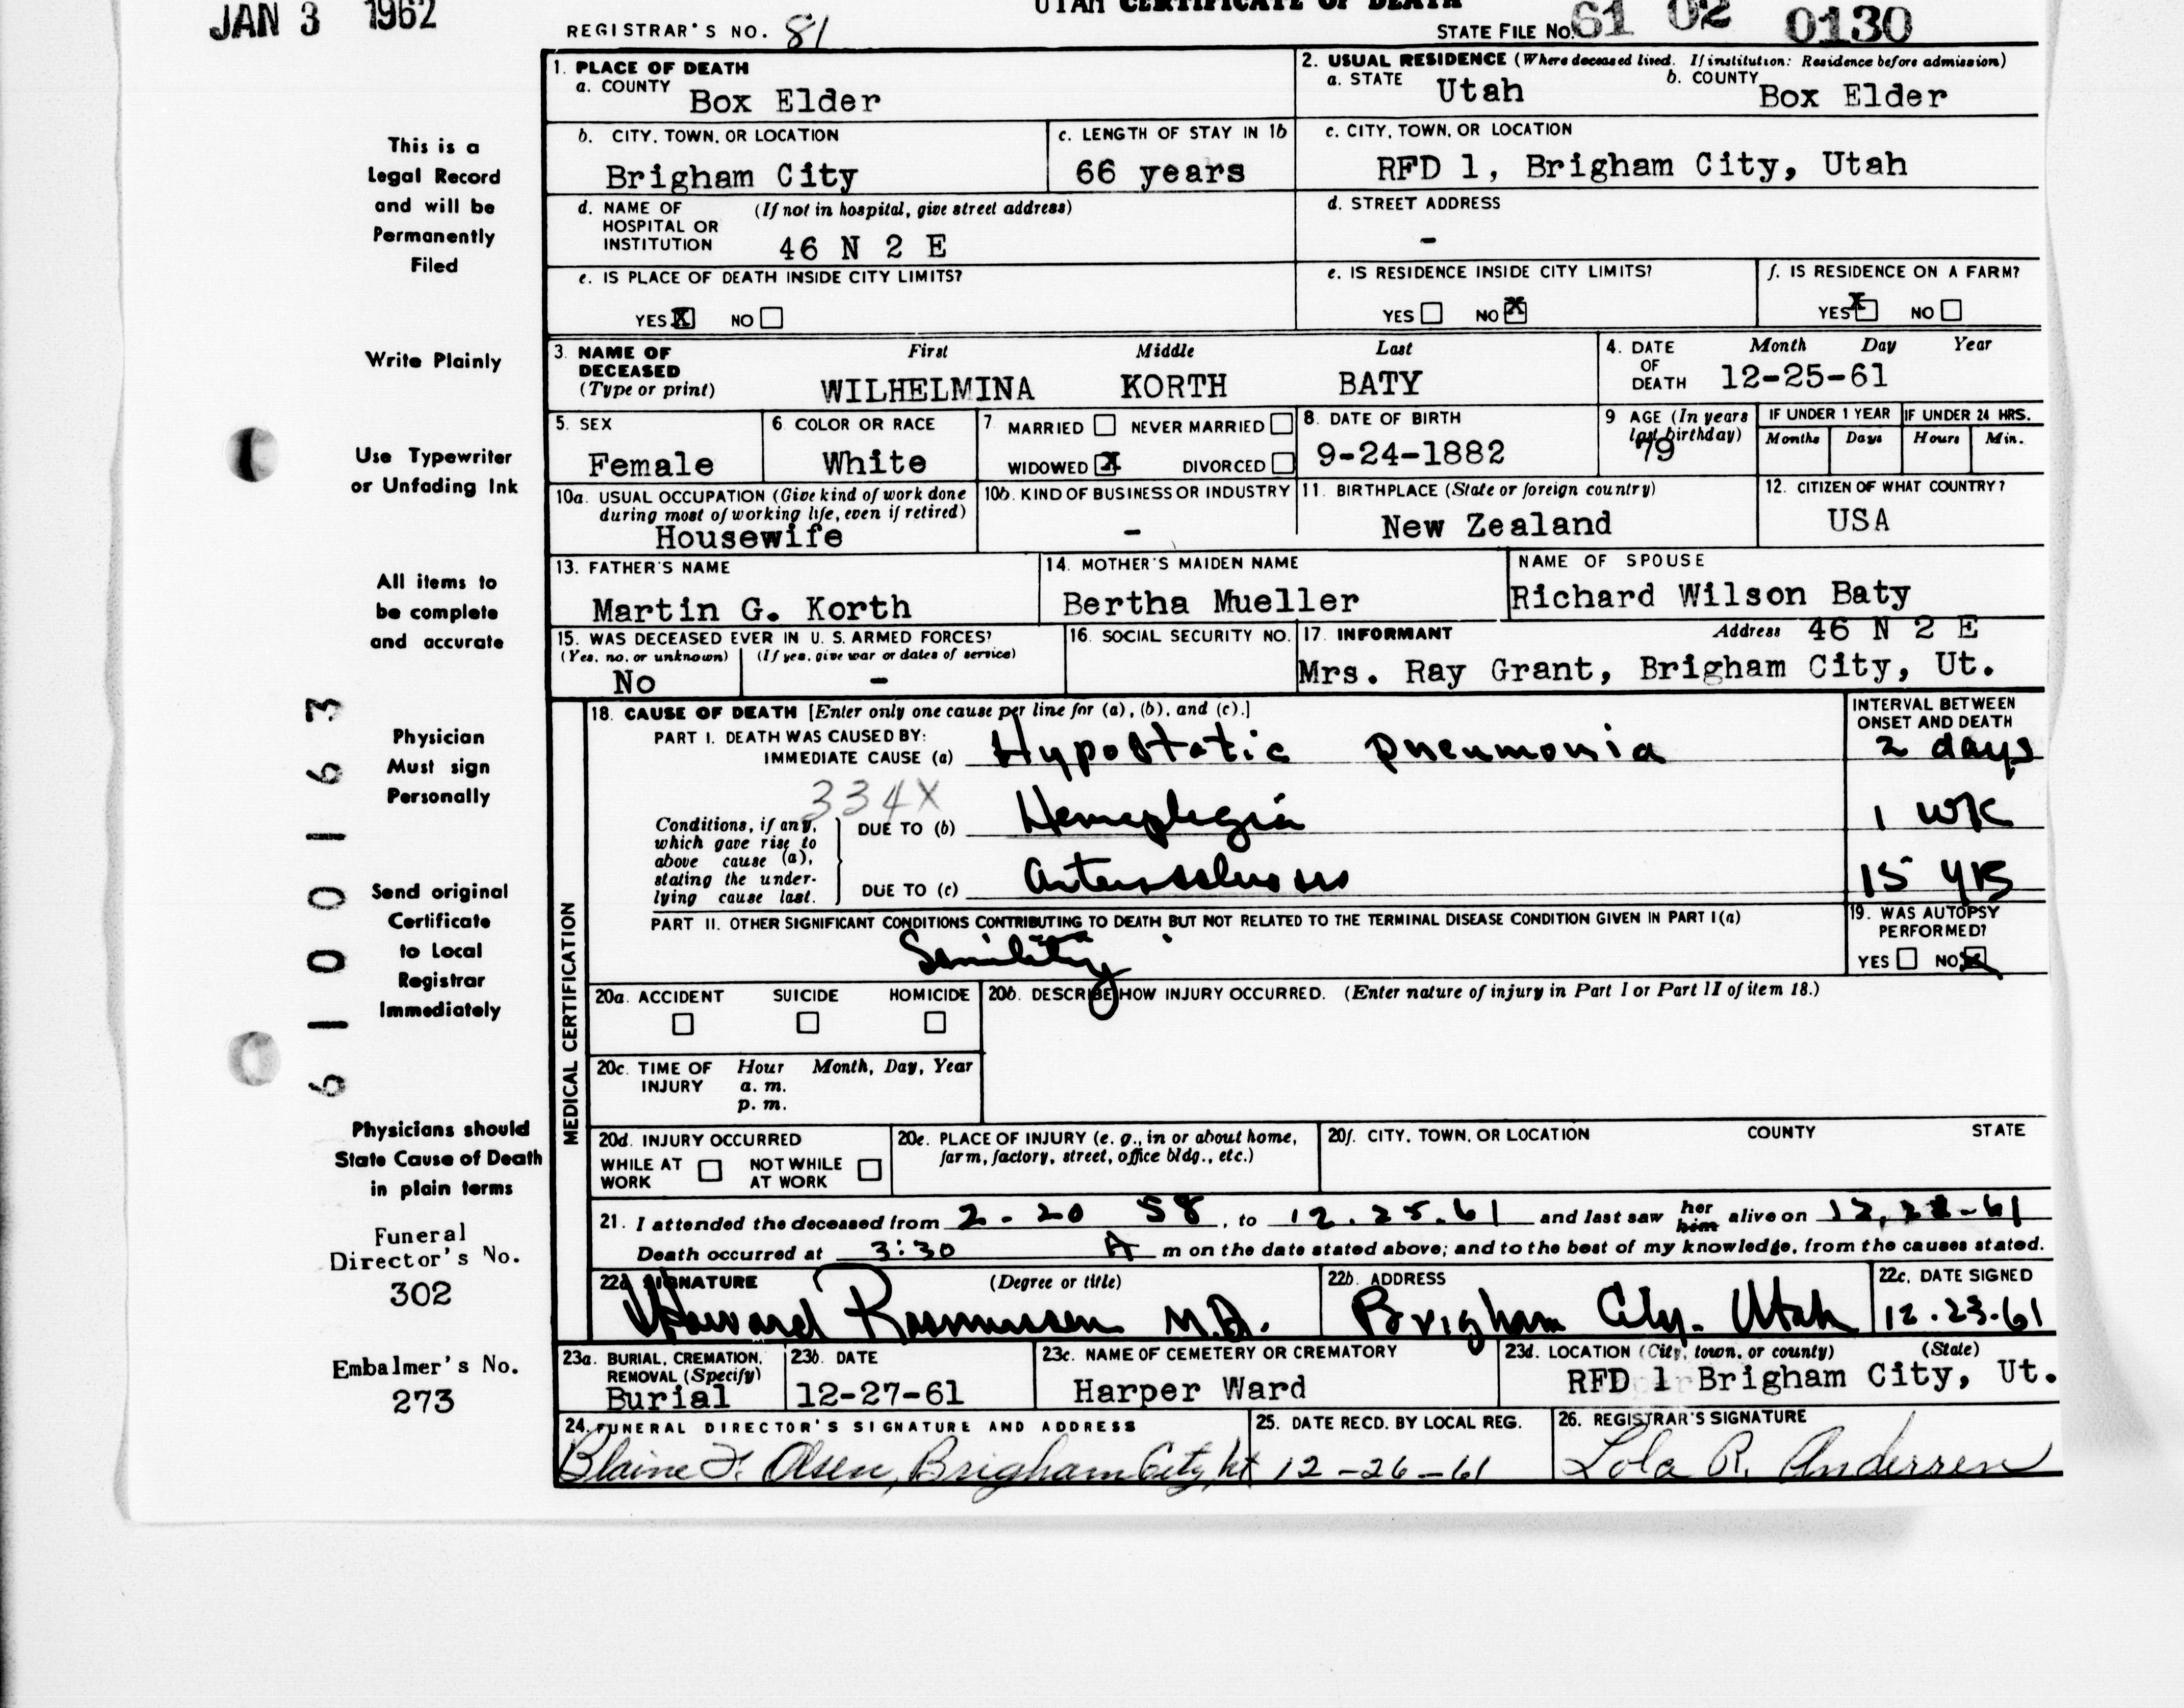 JAN 3 1962
UTAH CERTIFICATE OF DEATH
REGISTRAR'S NO. 81
STATE FILE NO. 61 02 0130
1. PLACE OF DEATH
a. COUNTY Box Elder
2. USUAL RESIDENCE (Where deceased lived. If institution: Residence before admission)
a. STATE Utah b. COUNTY Box Elder
b. CITY, TOWN, OR LOCATION
Brigham City
c. LENGTH OF STAY IN 1b
66 years
c. CITY, TOWN, OR LOCATION
RFD 1, Brigham City, Utah
d. NAME OF (If not in hospital, give street address)
HOSPITAL OR
INSTITUTION 46 N 2 E
d. STREET ADDRESS
-
e. IS PLACE OF DEATH INSIDE CITY LIMITS?
YES X NO
e. IS RESIDENCE INSIDE CITY LIMITS?
YES NO X
f. IS RESIDENCE ON A FARM?
YES X NO
3. NAME OF DECEASED (Type or print)
First Middle Last
WILHELMINA KORTH BATY
4. DATE OF DEATH Month Day Year
12-25-61
5. SEX
Female
6 COLOR OR RACE
White
7 MARRIED NEVER MARRIED
WIDOWED X DIVORCED
8. DATE OF BIRTH
9-24-1882
9 AGE (In years last birthday)
79
IF UNDER 1 YEAR IF UNDER 24 HRS.
Months Days Hours Min.
10a. USUAL OCCUPATION (Give kind of work done
during most of working life, even if retired)
Housewife
10b. KIND OF BUSINESS OR INDUSTRY
-
11. BIRTHPLACE (State or foreign country)
New Zealand
12. CITIZEN OF WHAT COUNTRY?
USA
13. FATHER'S NAME
Martin G. Korth
14. MOTHER'S MAIDEN NAME
Bertha Mueller
NAME OF SPOUSE
Richard Wilson Baty
15. WAS DECEASED EVER IN U. S. ARMED FORCES?
(Yes, no, or unknown) (If yes, give war or dates of service)
No -
16. SOCIAL SECURITY NO.
17. INFORMANT Address 46 N 2 E
Mrs. Ray Grant, Brigham City, Ut.
MEDICAL CERTIFICATION
18. CAUSE OF DEATH [Enter only one cause per line for (a), (b), and (c).]
INTERVAL BETWEEN
ONSET AND DEATH
PART I. DEATH WAS CAUSED BY:
IMMEDIATE CAUSE (a) Hypostatic pneumonia 2 days
334X
Conditions, if any,
which gave rise to
above cause (a),
stating the under-
lying cause last.
DUE TO (b) Hemeplegia 1 wk
DUE TO (c) arteriosclerosis 15 yrs
PART II. OTHER SIGNIFICANT CONDITIONS CONTRIBUTING TO DEATH BUT NOT RELATED TO THE TERMINAL DISEASE CONDITION GIVEN IN PART I(a)
Senility
19. WAS AUTOPSY
PERFORMED?
YES NO X
20a. ACCIDENT SUICIDE HOMICIDE
20b. DESCRIBE HOW INJURY OCCURRED. (Enter nature of injury in Part I or Part II of item 18.)
20c. TIME OF INJURY Hour Month, Day, Year
a. m.
p. m.
20d. INJURY OCCURRED
WHILE AT WORK NOT WHILE AT WORK
20e. PLACE OF INJURY (e. g., in or about home,
farm, factory, street, office bldg., etc.)
20f. CITY, TOWN, OR LOCATION COUNTY STATE
21. I attended the deceased from 2-20 58, to 12.25.61 and last saw her him alive on
Death occurred at 3:30 A m on the date stated above; and to the best of my knowledge, from the causes stated.
22a SIGNATURE (Degree or title)
Howard Rasmussen M.D.
22b. ADDRESS
Brigham City. Utah
22c. DATE SIGNED
12.23.61
23a. BURIAL, CREMATION,
REMOVAL (Specify)
Burial
23b. DATE
12-27-61
23c. NAME OF CEMETERY OR CREMATORY
Harper Ward
23d. LOCATION (City, town, or county) (State)
RFD 1 Brigham City, Ut.
24. FUNERAL DIRECTOR'S SIGNATURE AND ADDRESS
Blaine F. Olsen, Brigham City, Ut
25. DATE RECD. BY LOCAL REG.
12-26-61
26. REGISTRAR'S SIGNATURE
Lola R. Andersen
This is a
Legal Record
and will be
Permanently
Filed
Write Plainly
Use Typewriter
or Unfading Ink
All items to
be complete
and accurate
Physician
Must sign
Personally
Send original
Certificate
to Local
Registrar
Immediately
Physicians should
State Cause of Death
in plain terms
Funeral
Director's No.
302
Embalmer's No.
273
61100163